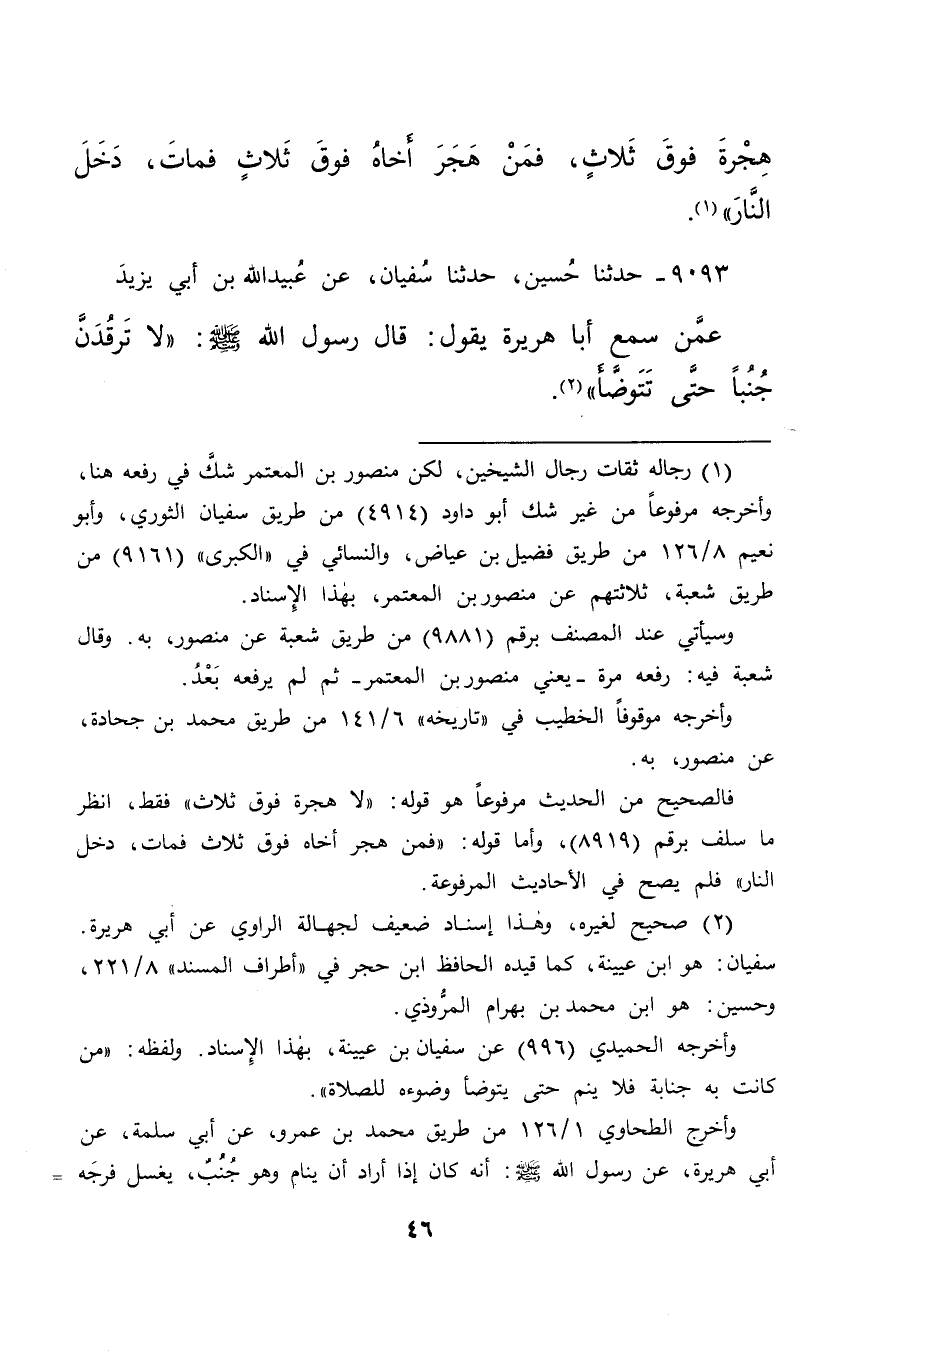 هِجْرةَ فوقَ ثَلاثٍ، فمَنْ هَجَرَ أَخاهُ فوقَ ثَلاثٍ فماتَ، دَخَلَ
النَّارَ»(١).
٩٠٩٣ـ حدثنا حُسين، حدثنا سُفيان، عن عُبيدالله بن أبي يزيدَ
عمَّن سمع أبا هريرة يقول: قال رسول الله ﷺ: «لا تَرقُدَنَّ
جُنُباً حتَّى تَتَوضَّأَ»(٢).
(١) رجاله ثقات رجال الشيخين، لكن منصور بن المعتمر شكَّ في رفعه هنا،
وأخرجه مرفوعاً من غير شك أبو داود (٤٩١٤) من طريق سفيان الثوري، وأبو
نعيم ١٢٦/٨ من طريق فضيل بن عياض، والنسائي في «الكبرى» (٩١٦١) من
طريق شعبة، ثلاثتهم عن منصور بن المعتمر، بهٰذا الإِسناد.
وسيأتي عند المصنف برقم (٩٨٨١) من طريق شعبة عن منصور، به. وقال
شعبة فيه: رفعه مرة ـ يعني منصور بن المعتمر ـ ثم لم يرفعه بَعْدُ.
وأخرجه موقوفاً الخطيب في «تاريخه» ١٤١/٦ من طريق محمد بن جحادة،
عن منصور، به.
فالصحيح من الحديث مرفوعاً هو قوله: «لا هجرة فوق ثلاث» فقط، انظر
ما سلف برقم (٨٩١٩)، وأما قوله: «فمن هجر أخاه فوق ثلاث فمات، دخل
النار» فلم يصح في الأحاديث المرفوعة.
(٢) صحيح لغيره، وهٰذا إسناد ضعيف لجهالة الراوي عن أبي هريرة.
سفيان: هو ابن عيينة، كما قيده الحافظ ابن حجر في «أطراف المسند» ٢٢١/٨،
وحسين: هو ابن محمد بن بهرام المرُّوذي.
وأخرجه الحميدي (٩٩٦) عن سفيان بن عيينة، بهٰذا الإِسناد. ولفظه: «من
كانت به جنابة فلا ينم حتى يتوضأ وضوءه للصلاة».
وأخرج الطحاوي ١٢٦/١ من طريق محمد بن عمرو، عن أبي سلمة، عن
أبي هريرة، عن رسول الله ﷺ: أنه كان إذا أراد أن ينام وهو جُنُبٌ، يغسل فرجَه =
٤٦